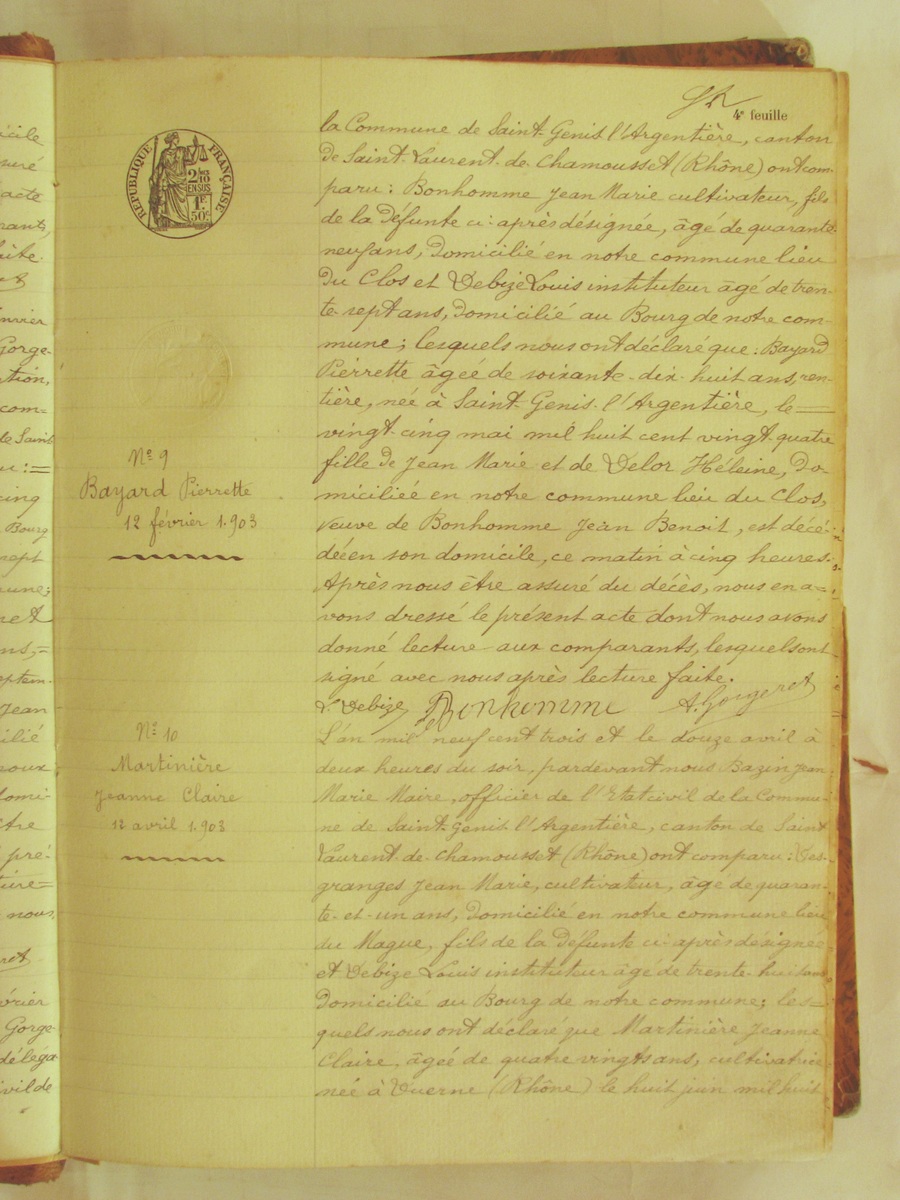 4e feuille
RÉPUBLIQUE FRANÇAISE
2/10 EN SUS
1F 50c
la Commune de Saint-Genis l'Argentière, canton
de Saint-Laurent-de-Chamousset (Rhône) ont com-
paru: Bonhomme Jean Marie cultivateur, fils
de la Défunte ci-après désignée, âgé de quarante
neuf ans, Domicilié en notre commune lieu
du Clos et Debize Louis instituteur âgé de tren-
te-sept ans, Domicilié au Bourg de notre com-
mune; lesquels nous ont déclaré que: Bayard
Pierrette âgée de soixante-dix-huit ans, ren-
tière, née à Saint-Genis-l'Argentière, le=
vingt-cinq mai mil huit cent vingt-quatre
fille de Jean Marie et de Delor Héleine, Do-
miciliée en notre commune lieu du Clos,
veuve de Bonhomme Jean Benoit, est décé-
dée en son domicile, ce matin à cinq heures.
Après nous être assuré du décès, nous en a=
vons dressé le présent acte dont nous avons
donné lecture aux comparants, lesquels ont
signé avec nous après lecture faite.
L. Debize Bonhomme A. Gorgeret
No 9
Bayard Pierrette
12 février 1.903
No 10
Martinière
Jeanne Claire
12 avril 1.903
L'an mil neuf cent trois et le douze avril à
deux heures du soir, pardevant nous Bazin Jean
Marie Maire, officier de l'Etat civil de la Commu-
ne de Saint-Genis l'Argentière, canton de Saint
Laurent-de-Chamousset (Rhône) ont comparu: Des-
granges Jean Marie, cultivateur, âgé de quaran-
te-et-un ans, Domicilié en notre commune lieu
du Mague, fils de la Défunte ci-après désignée
et Debize Louis instituteur âgé de trente-huit ans
Domicilié au Bourg de notre commune; les=
quels nous ont déclaré que Martinière Jeanne
Claire, âgée de quatre vingts ans, cultivatrice
née à Duerne (Rhône) le huit juin mil huit